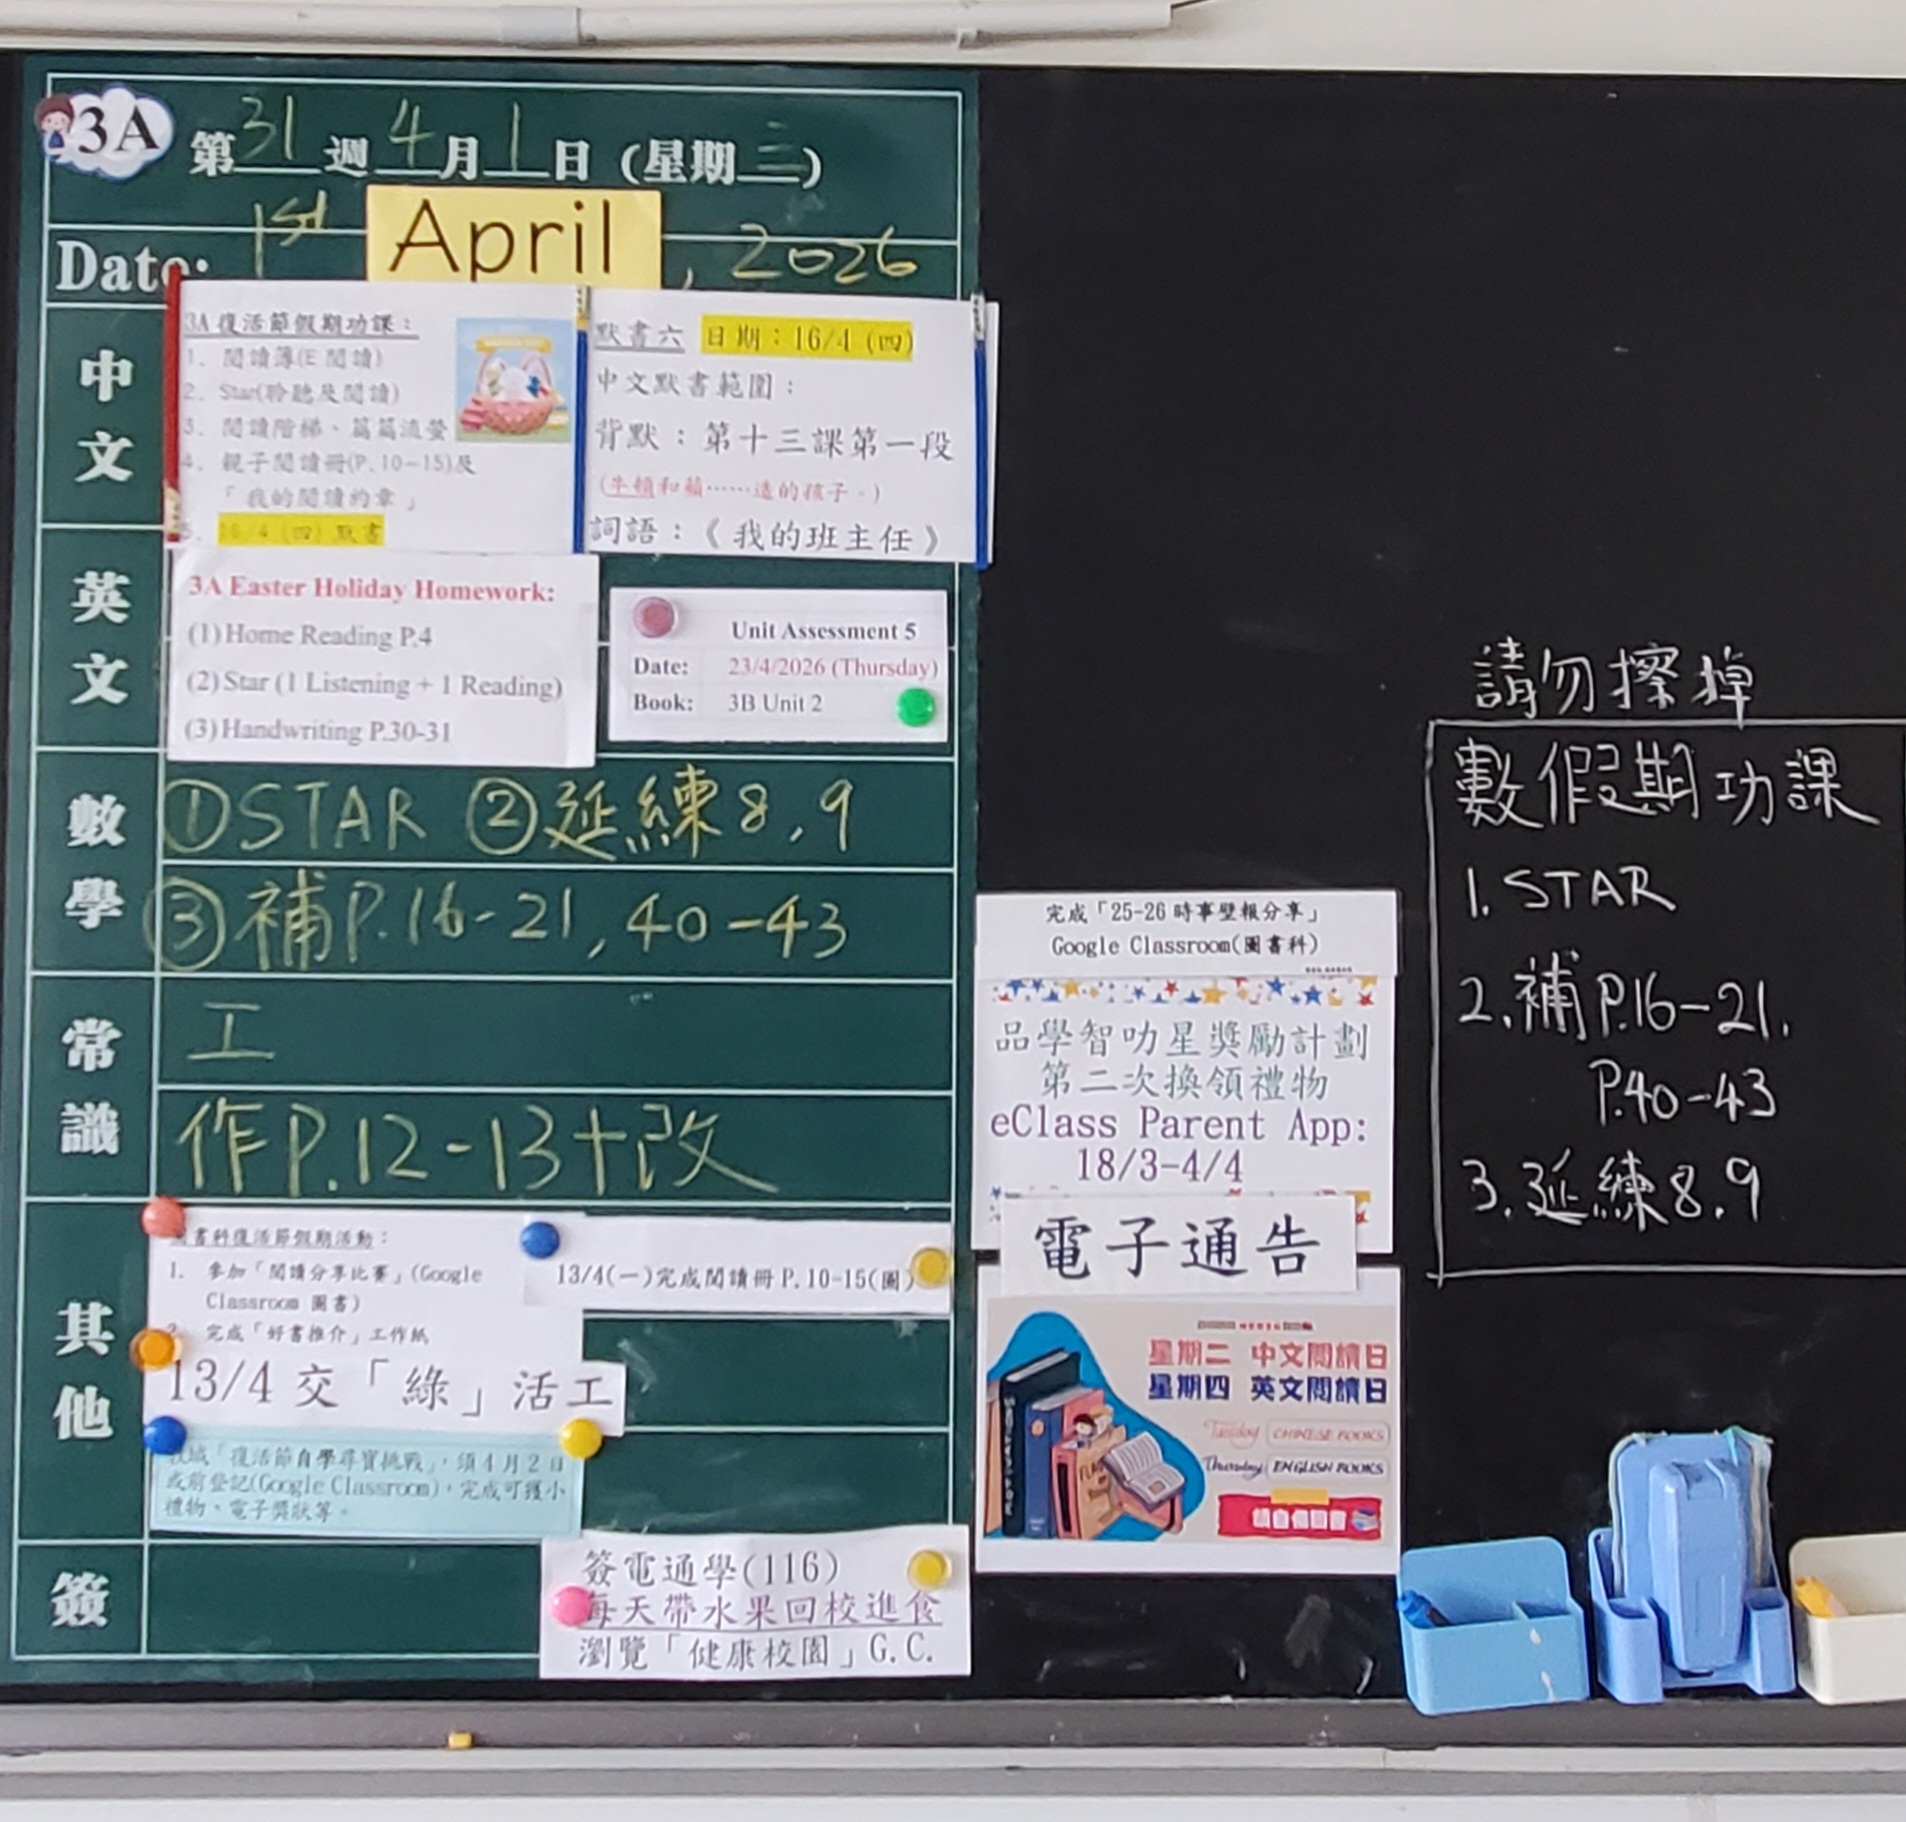 3A 第31週4月1日(星期三)
Date: 1st April, 2026
中文
3A 復活節假期功課:
1. 閱讀簿(E 閱讀)
2. Star(聆聽及閱讀)
3. 閱讀階梯、篇篇流螢
4. 親子閱讀冊(P.10-15)及
「我的閱讀約章」
5. 16/4 (四) 默書
默書六 日期:16/4 (四)
中文默書範圍:
背默:第十三課第一段
(牛頓和蘋……造的孩子。)
詞語:《我的班主任》
英文
3A Easter Holiday Homework:
(1) Home Reading P.4
(2) Star (1 Listening + 1 Reading)
(3) Handwriting P.30-31
Unit Assessment 5
Date: 23/4/2026 (Thursday)
Book: 3B Unit 2
數學
①STAR ②延練8, 9
③補P.16-21, 40-43
常識
工
作P.12-13+改
其他
圖書科復活節假期活動:
1. 參加「閱讀分享比賽」(Google
Classroom 圖書)
2. 完成「好書推介」工作紙
13/4(一)完成閱讀冊 P.10-15(圖)
13/4 交「綠」活工
「復活節自學尋寶挑戰」,須4月2日
或前登記(Google Classroom),完成可獲小
禮物、電子獎狀等。
簽
簽電通學(116)
每天帶水果回校進食
瀏覽「健康校園」G.C.
完成「25-26 時事壁報分享」
Google Classroom(圖書科)
品學智叻星獎勵計劃
第二次換領禮物
eClass Parent App:
18/3-4/4
電子通告
星期二 中文閱讀日
星期四 英文閱讀日
Tuesday CHINESE BOOKS
Thursday ENGLISH BOOKS
請勿擦掉
數假期功課
1. STAR
2. 補P.16-21.
P.40-43
3. 延練8.9